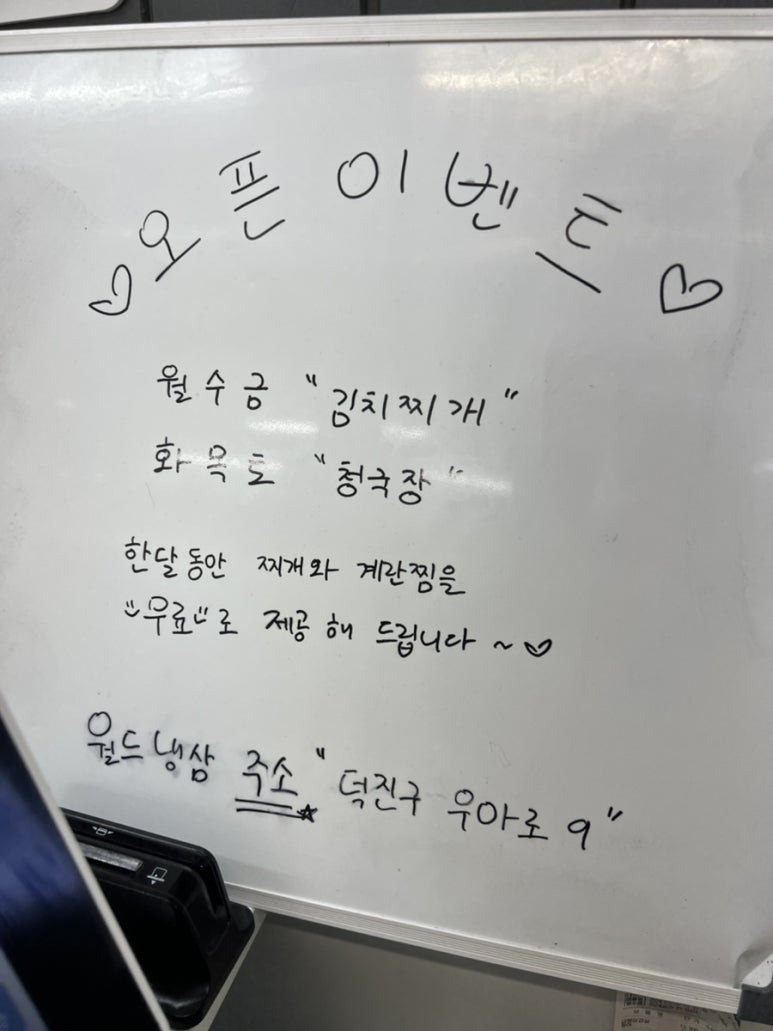 오픈 이벤트
월 수 금 "김치찌개"
화 목 토 "청국장"
한달동안 찌개와 계란찜을
"무료"로 제공 해 드립니다 ~
월드냉삼 주소 "덕진구 우아로 9"